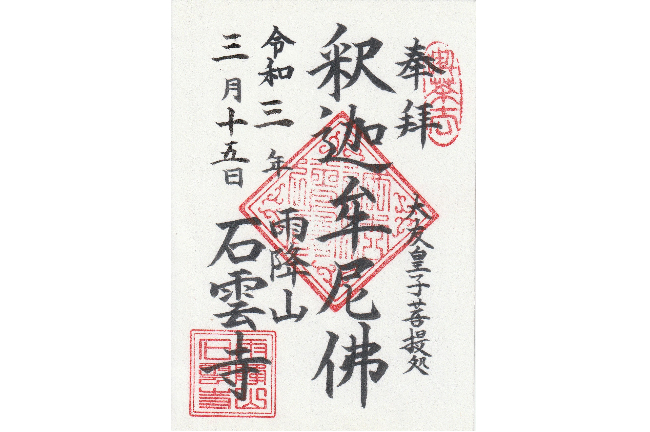 奉拝
大友皇子菩提処
釈迦牟尼佛
雨降山
石雲寺
令和三年
三月十五日